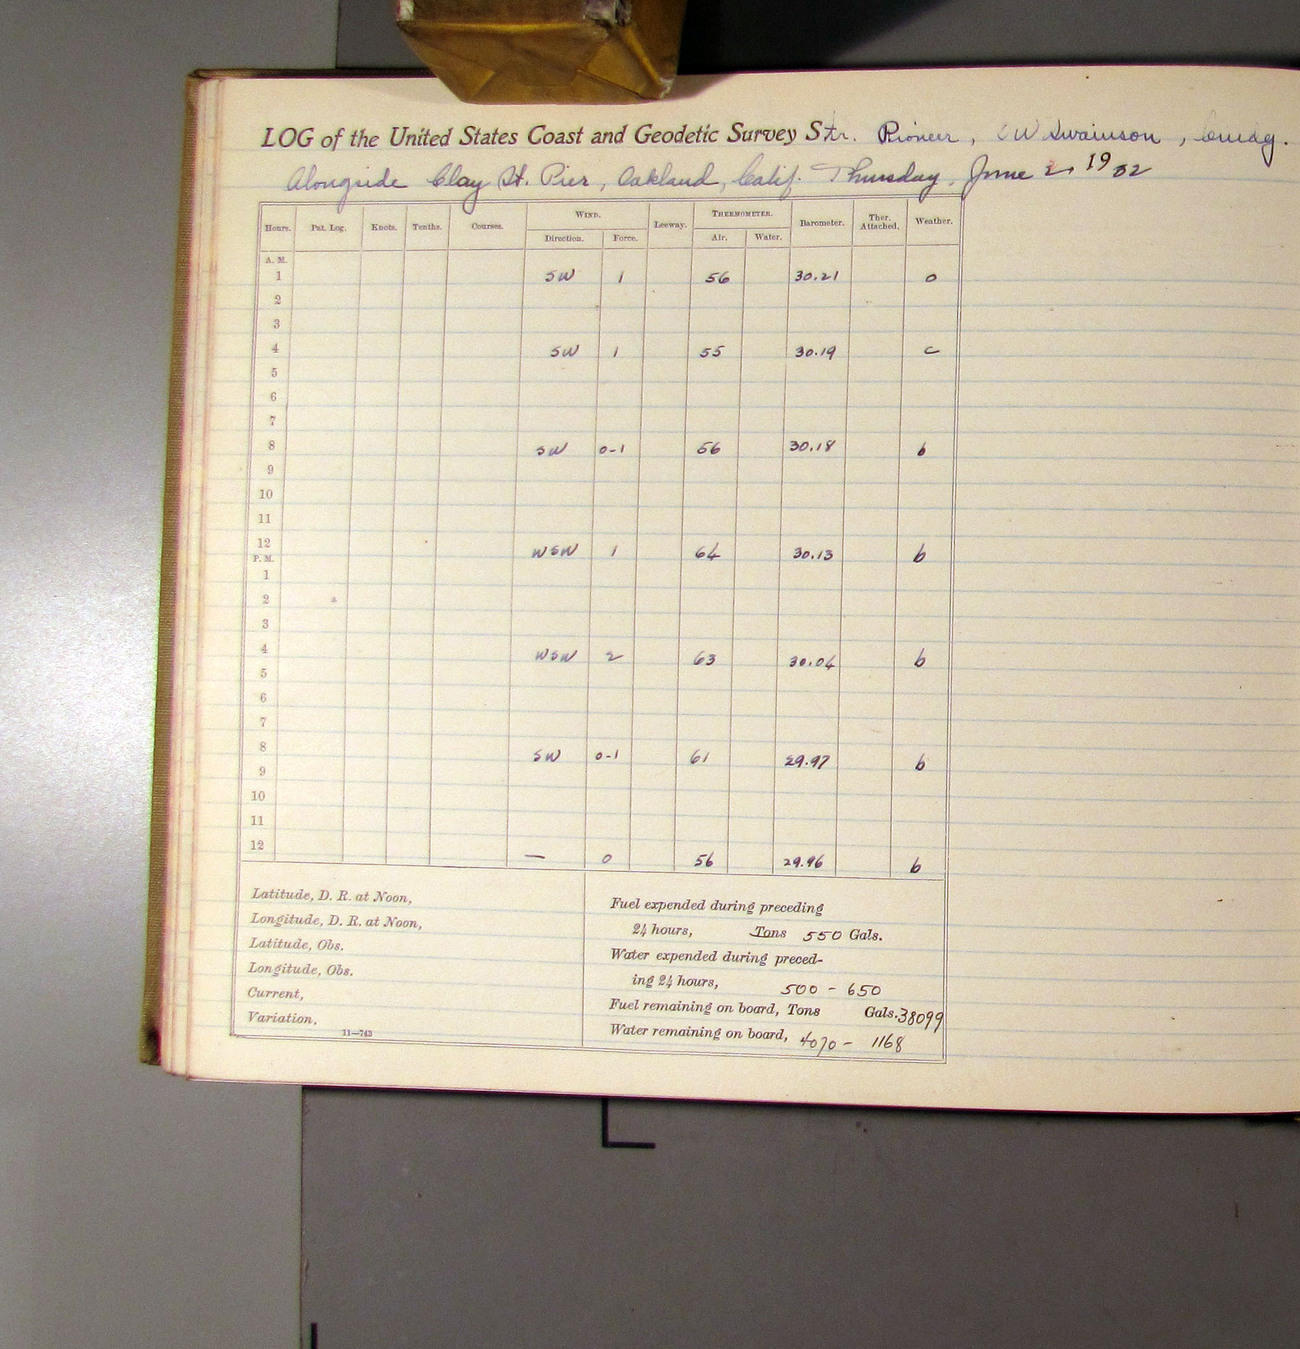 LOG of the United States Coast and Geodetic Survey Str. Pioneer, OW Swainson, Comdg.
Alongside Clay St. Pier, Oakland, Calif. Thursday, June 2, 1932
Hours. Pat. Log. Knots. Tenths. Courses. WIND. Direction. Force. Leeway. THERMOMETER. Air. Water. Barometer. Ther. Attached. Weather.
A. M.
1 SW 1 56 30.21 o
2
3
4 SW 1 55 30.19 c
5
6
7
8 SW 0-1 56 30.18 b
9
10
11
12 WSW 1 64 30.13 b
P. M.
1
2
3
4 WSW 2 63 30.04 b
5
6
7
8 SW 0-1 61 29.97 b
9
10
11
12 — 0 56 29.96 b
Latitude, D. R. at Noon,
Longitude, D. R. at Noon,
Latitude, Obs.
Longitude, Obs.
Current,
Variation,
11—743
Fuel expended during preceding
24 hours, Tons 550 Gals.
Water expended during preced-
ing 24 hours, 500 - 650
Fuel remaining on board, Tons Gals. 38099
Water remaining on board, 4070 - 1168